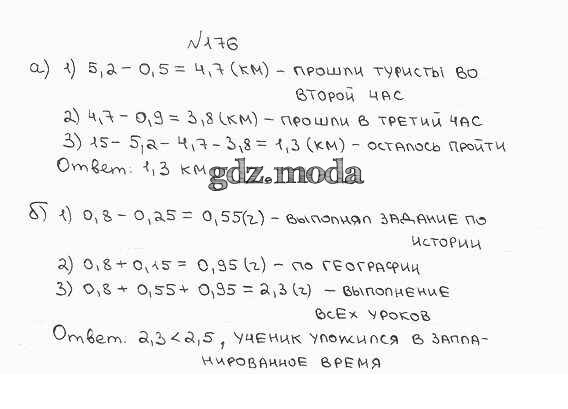 №176
а) 1) 5,2 - 0,5 = 4,7 (км) - прошли туристы во
второй час
2) 4,7 - 0,9 = 3,8 (км) - прошли в третий час
3) 15 - 5,2 - 4,7 - 3,8 = 1,3 (км) - осталось пройти
Ответ: 1,3 км
gdz.moda
б) 1) 0,8 - 0,25 = 0,55 (г) - выполнял задание по
истории
2) 0,8 + 0,15 = 0,95 (г) - по географии
3) 0,8 + 0,55 + 0,95 = 2,3 (г) - выполнение
всех уроков
Ответ: 2,3 < 2,5, ученик уложился в запла-
нированное время